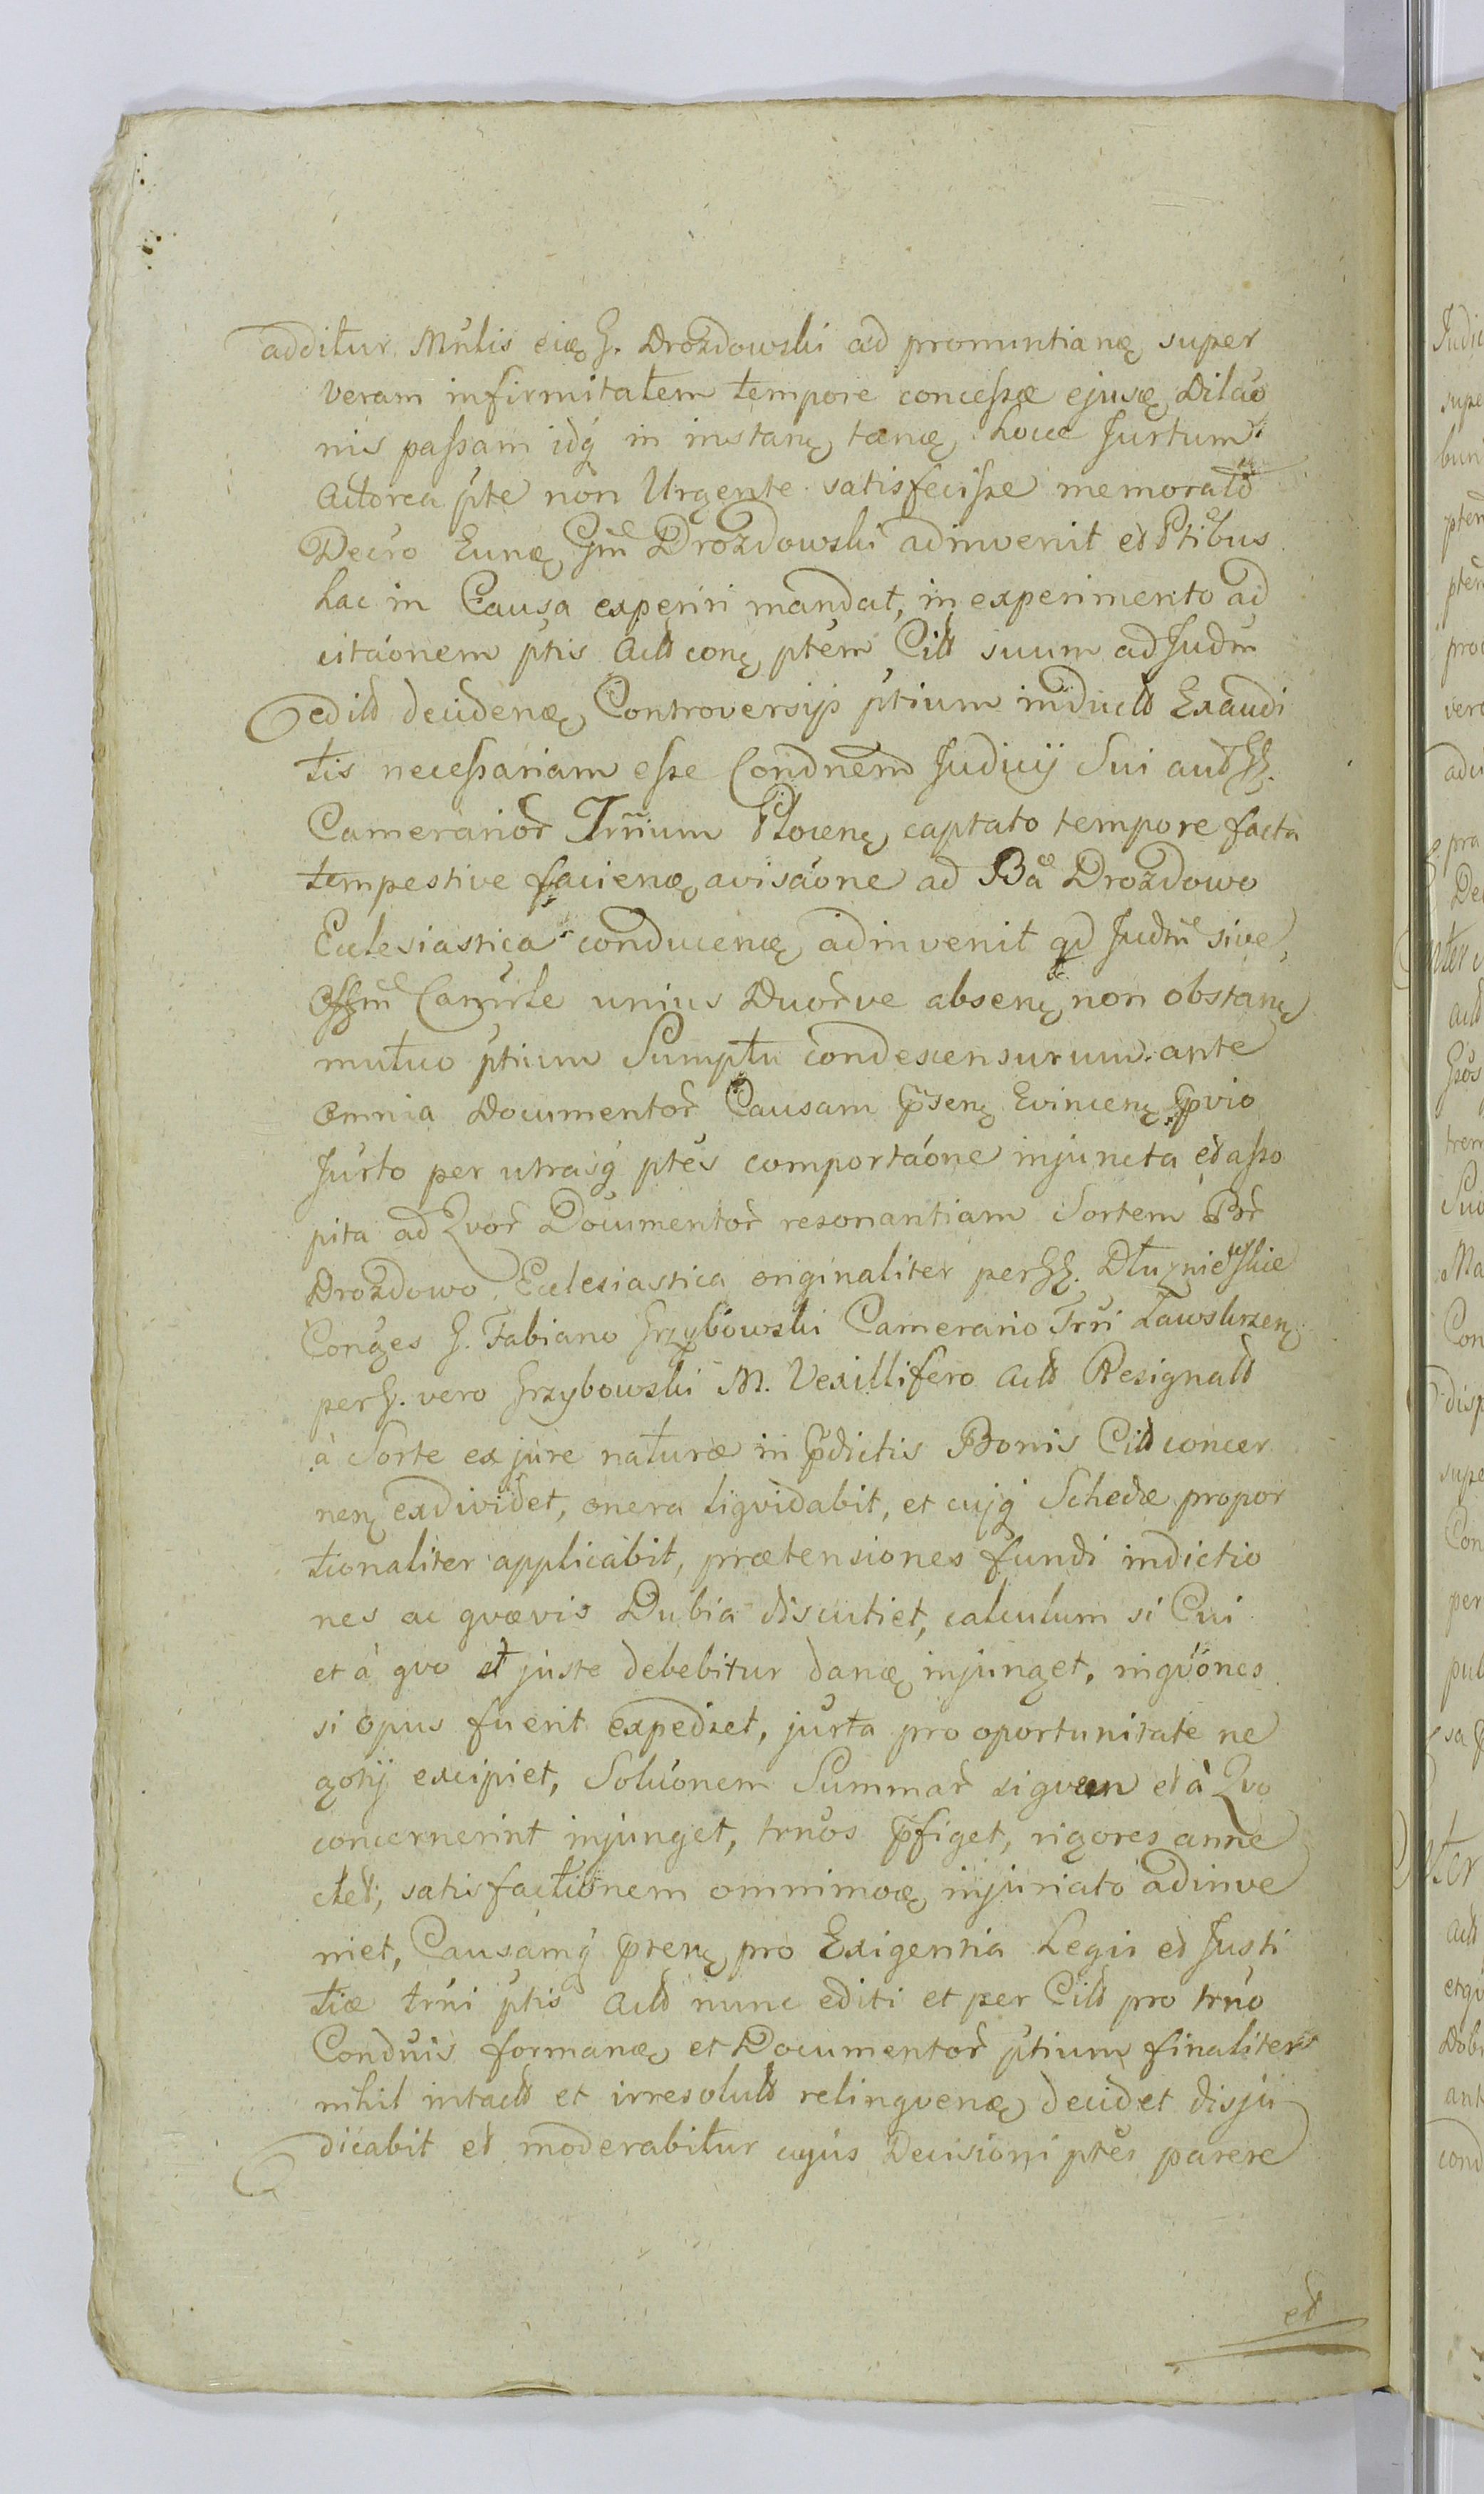 additur Mŭlis eię G. Drozdowski ad pronuntianę super
veram infirmitatem tempore concessæ ejusę Dilaó
nis passam idq́ in instanę tænę. hocce Jurtum
Actorea pte non Urgente satisfecisse memoratō
Decro Eunę Gm̄ Drozdowski adinvenit et Ptibus
hac in Causa experiri mandat, in experimento ad
citáonem ptis Actt conę ptem Citt suum ad Judm̄
editt decidenę Controversijs ptium inductt Exaudi
tis necessariam esse Condnem Judicij Sui aut GG.
Camerarior̄ Trr̄ium Plocenę captato tempore facta
tempestive facienę avisáone ad Bā Drozdowo
Ecclesiastica conducenę adinvenit qd Judm̄ sive
Offm̄ Camrle unius Duor̄ve absenę non obstanę
mutuo ptium Sumptu condescensurum ante
omnia Documentor̄ Causam p̄senę Evincenę p̄vio
Jurto per utrasq́ ptes comportáone injuncta et asso
pita ad Qvor̄ Documentor̄ resonantiam Sortem Bor̄
Drozdowo Ecclesiastica originaliter per GG. Dłuzniewskie
Conges G. Fabiano Grzybowski Camerario Trrī Zawskrzenę
per G. vero Grzybowski M. Vexillifero Actt Resignatt
à Sorte ex jure naturæ in p̄dictis Bonis Citt concer
nenę exdividet, onera liqvidabit, et cujq́ Schedæ propor
tionaliter applicabit, prætensiones fundi indictio
nes ac qvævis Dubia discutiet, calculum si Cui
et à qvo et juste debebitur danę injunget, inqv́ones
si opus fuerit expediet, jurta pro oportunitate ne
gotij excipiet, Solúonem Summar̄ si qvam et à Qvo
concernerint injunget, trnos p̄figet, rigores anne
ctet, satisfactionem omnimoę injuriato adinve
niet, Causamq́ p̄tenę pro Exigentia Legis et Justi
tiæ trni ptis Actt nunc editi et per Citt pro trno
Condnis formanę et Documentor̄ ptium finaliter
nihil intactt et irresolutt relinqvenę decidet disju
dicabit et moderabitur cujus Decisioni ptes parere
et